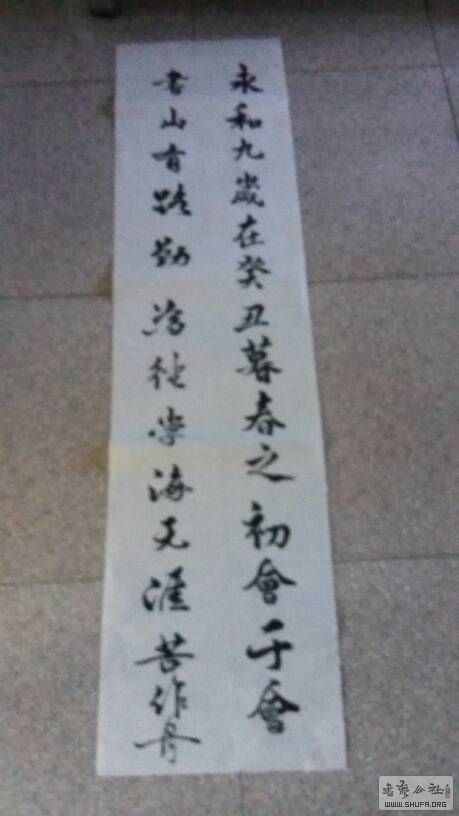 永和九歲在癸丑暮春之初會于會
书山有路勤为徑学海无涯苦作舟
书艺公社
WWW.SHUFA.ORG